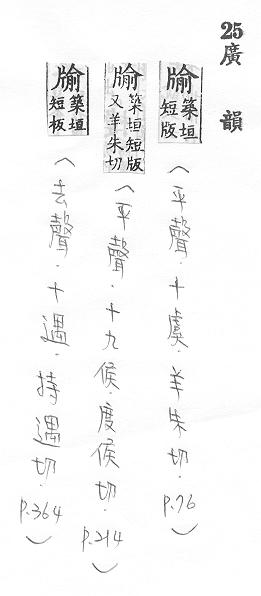 25廣韻
牏築垣短版（平聲．十虞．羊朱切．p.76）
牏築垣短版又羊朱切（平聲．十九侯．度侯切．p.214）
牏築垣短板（去聲．十遇．持遇切．p.364）